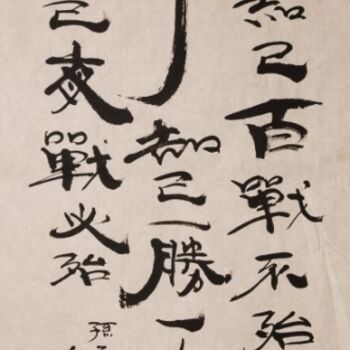 知己百戰不殆
知己一勝一
己戰必殆
孫子